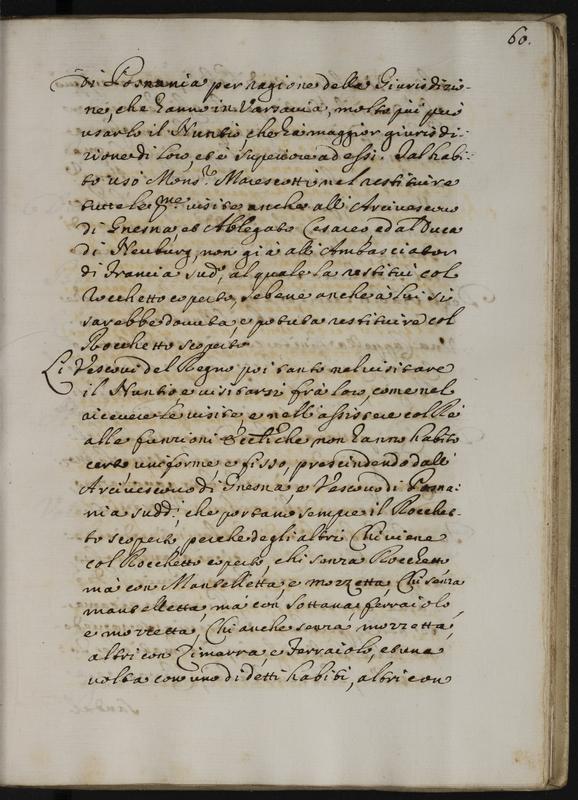 60.
di Posnania per ragione della Giurisdizio-
ne, che hanno in Varsavia, molto più può
usarlo il Nuntio, che hà maggior giurisdi-
zione di loro, et è superiore ad essi. Tal habi-
to usò Mons.r Marescotti nel restituire
tutte le pme visite anche all' Arcivescovo
di Gnesna, et Ablegato Cesareo ed al Duca
di Neuburg, non già all' Ambasciator
di Francia sud.o, al quale la restituì col
Rocchetto coperto, se bene anche à lui si
sarebbe dovuta, e potuta restituire col
Rocchetto scoperto.
Li Vescovi del Regno poi tanto nel visitare
il Nuntio, e visitarsi frà loro, come nel
ricevere le visite, e nell' assistere col Rè
alle funzioni Eccl.che non hanno habito
certo, uniforme e fisso, prescindendo dall'
Arcivescovo di Gnesna, e Vescovo di Posna-
nia sudd.i, che portano sempre il Rocchet-
to scoperto, perche degli altri Chi viene
col Rocchetto coperto, chi senza Rocchetto
mà con Mantelletta, e mozzetta, Chi senza
mantelletta, mà con sottana, ferraiolo,
e mozzetta, Chi anche senza mozzetta,
altri con Zimarra, e Ferraiolo, et una
volta con uno di detti habiti, altri con